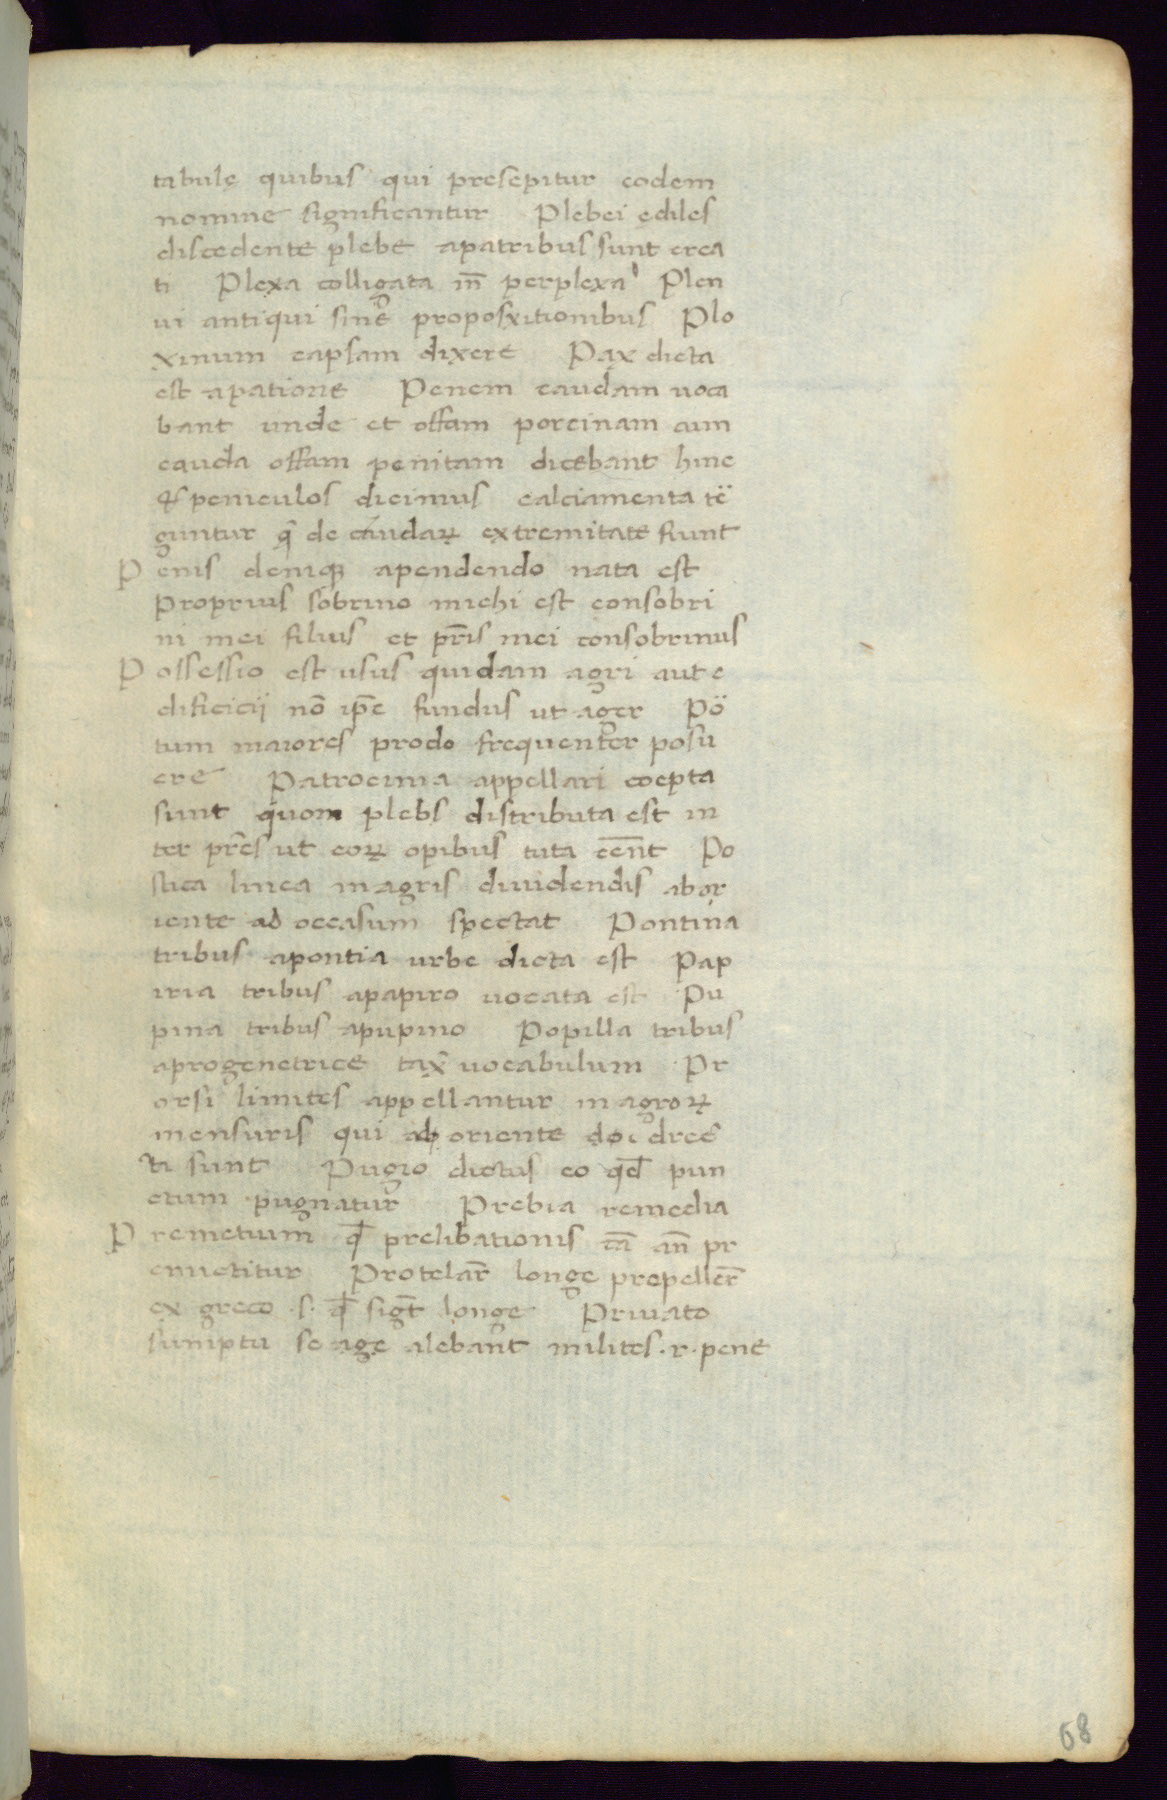 tabulę quibus qui presepitur eodem
nomine significantur Plebei ediles
discedente plebe apatribus sunt crea
ti Plexa colligata in̄ perplexa Plen
ui antiqui sine proposxitionibus Plo
xinum capsam dixere Pax dicta
est apatione Penem caudam uoca
bant unde et offam porcinam cum
cauda offam penitam dicebant hinc
& peniculos dicimus calciamenta te
guntur q̄ de caudaꝝ extremitate fiunt
Penis deniqꝫ apendendo nata est
Proprius sobrino michi est consobri
ni mei filius et pr̄is mei consobrinus
Possessio est usus quidam agri aut e
dificicij nō ip̄e fundus ut ager Po
tum maiores prodo frequenter posu
ere Patrocinia appellari coepta
sunt quom plebs distributa est in
ter pr̄es ut eoꝝ opibus tuta e͞ent Po
stica linea inagris diuidendis abor
iente ad occasum spectat Pontina
tribus apontia urbe dicta est Pap
iria tribus apapiro uocata est Pu
pina tribus apupino Popilla tribus
aprogenetrice tax̄ uocabulum Pr
orsi limites appellantur in agroꝝ
mensuris qui ab oriente direc
ti sunt Pugio dictus eo qd̄ pun
ctum pugnatur Prebia remedia
Premetium qd̄ prelibationis cā an̄ pr
emictitur Protelar̄ longe prepeller̄
ex greco .s. qd̄ sigt̄ longe Priuato
sumptu se age alebant milites .r. pene
68